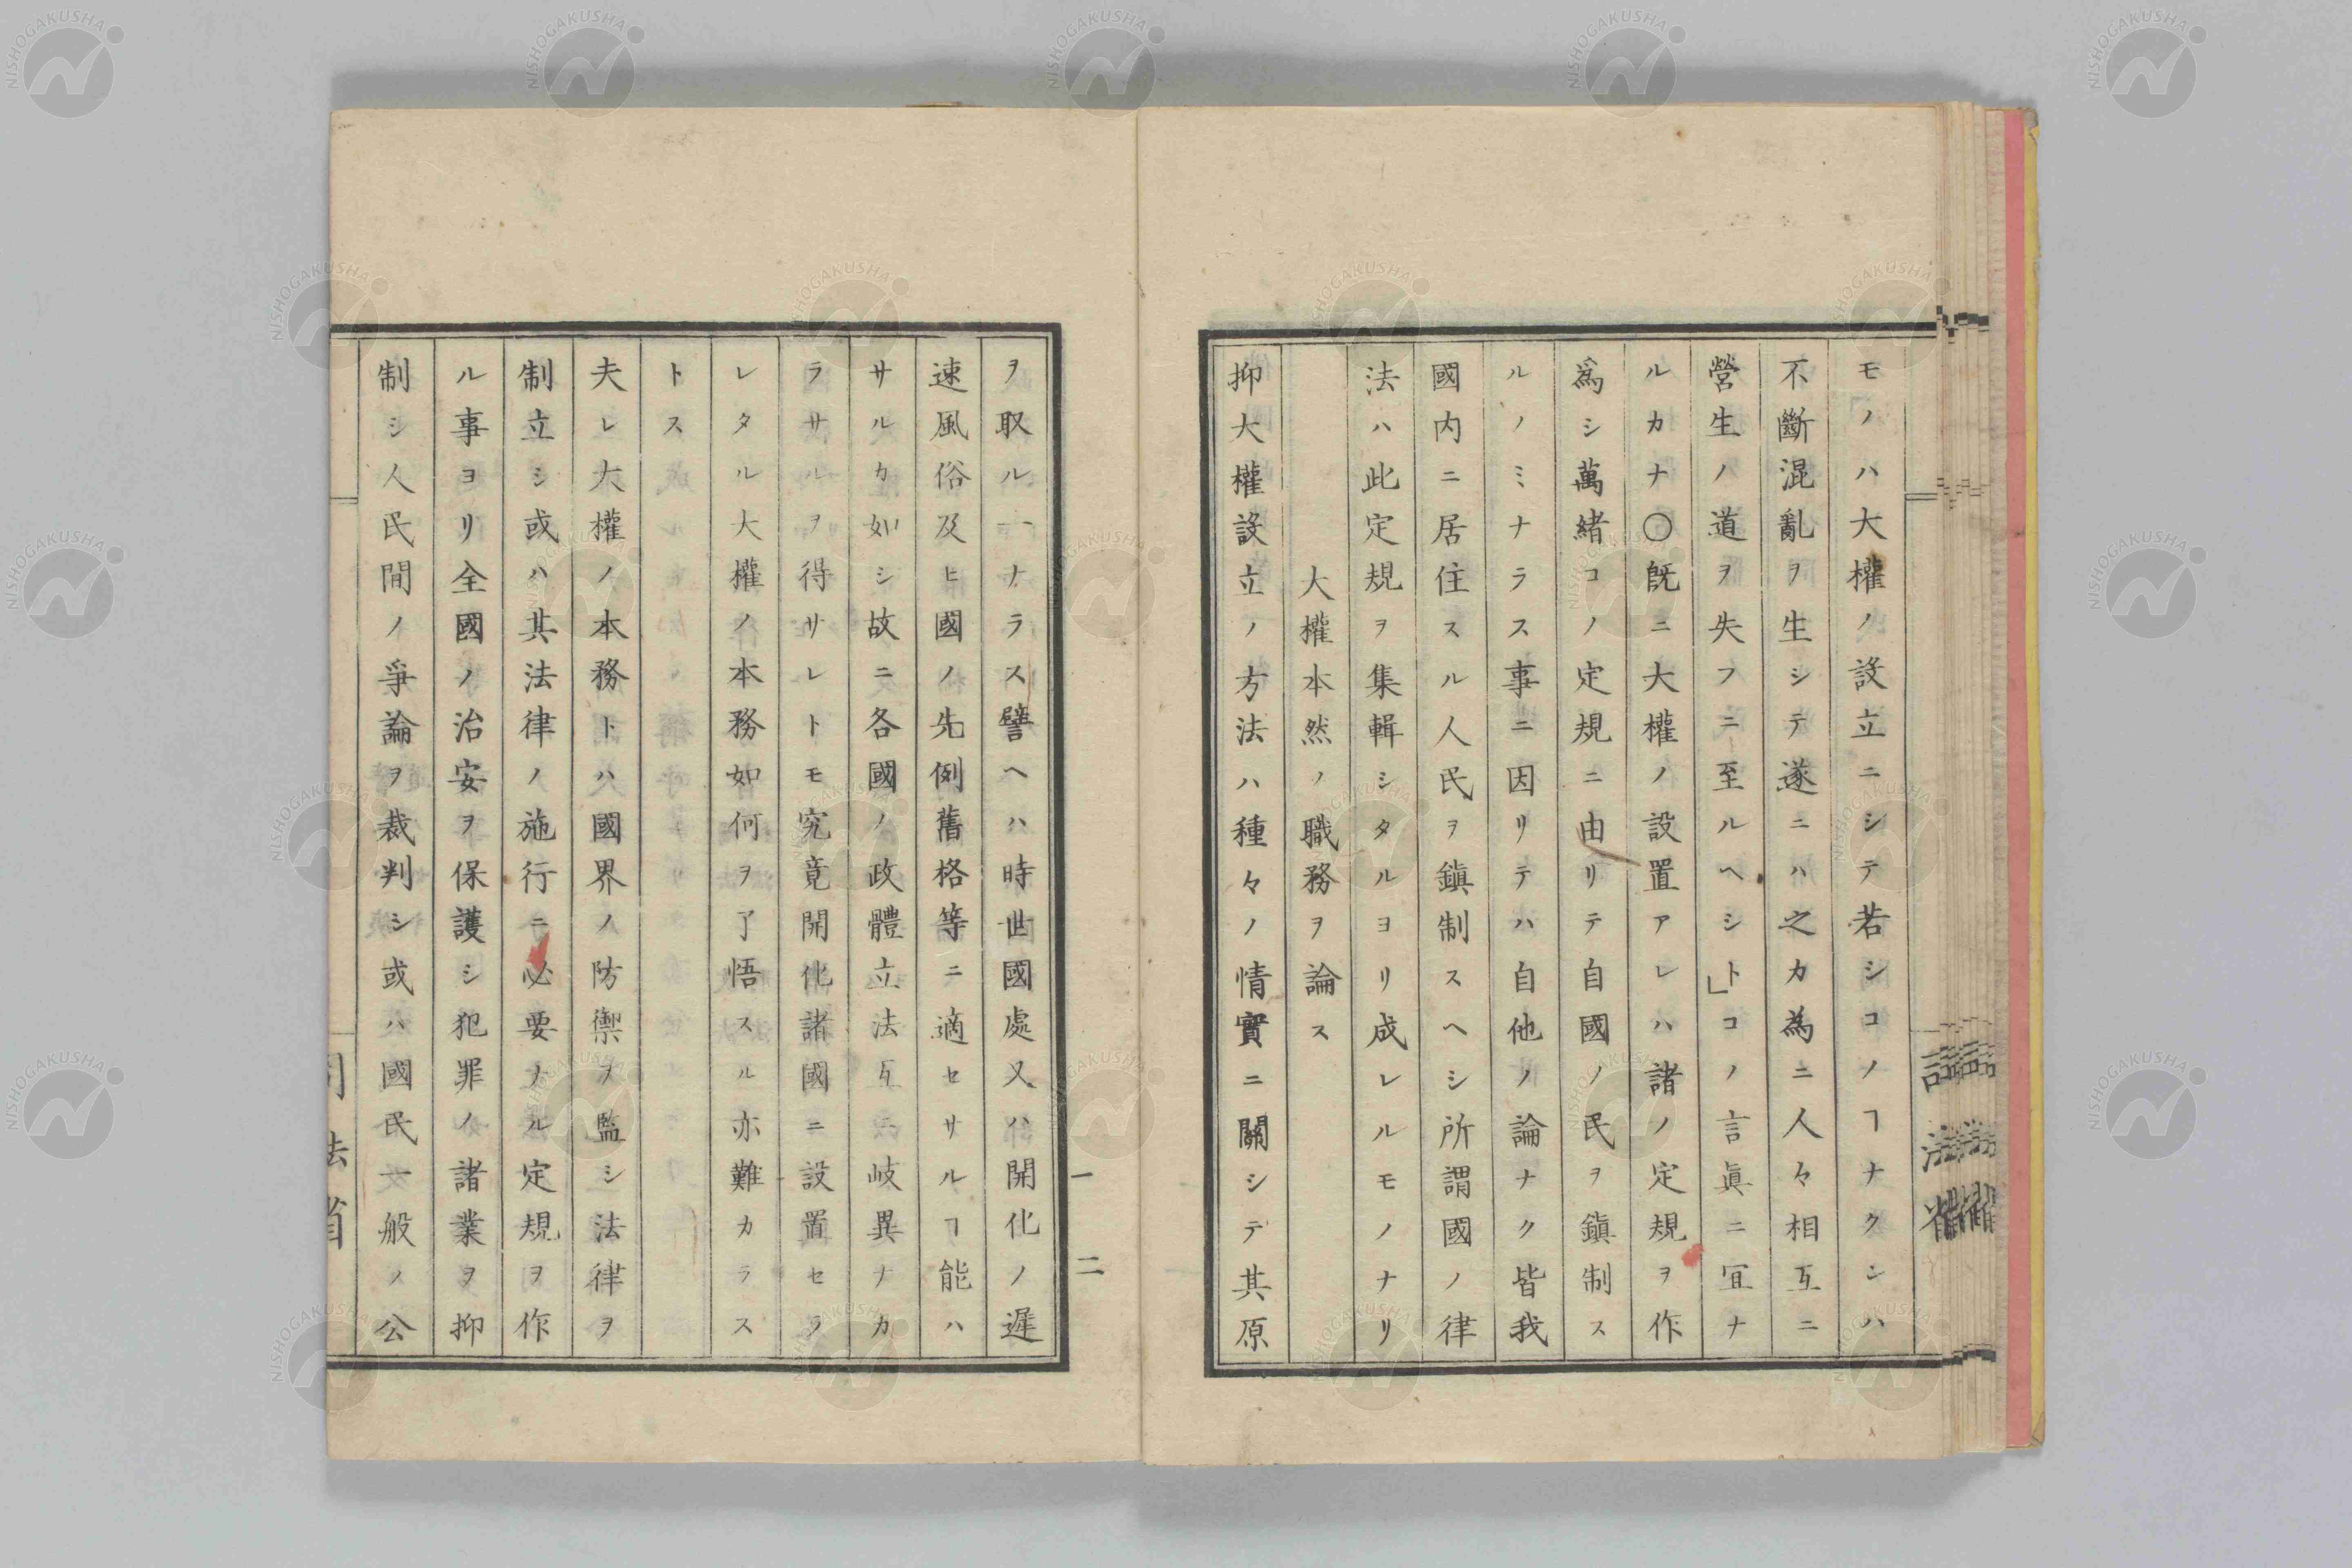 モノハ大權ノ設立ニシテ若シコノヿナクンハ
不斷混亂ヲ生シテ遂ニハ之カ為ニ人々相互ニ
營生ノ道ヲ失フニ至ルヘシト」コノ言眞ニ宜ナ
ルカナ〇既ニ大權ノ設置アレハ諸ノ定規ヲ作
爲シ萬緒コノ定規ニ由リテ自國ノ民ヲ鎭制ス
ルノミナラス事ニ因リテハ自他ノ論ナク皆我
國内ニ居住スル人民ヲ鎭制スヘシ所謂國ノ律
法ハ此定規ヲ集輯シタルヨリ成レルモノナリ
大權本然ノ職務ヲ論ス
抑大權設立ノ方法ハ種々ノ情實ニ關シテ其原
ヲ取ル一ナラス譬ヘハ時世國處又ハ開化ノ遲
速風俗及ヒ國ノ先例舊格等ニ適セサルヿ能ハ
サルカ如シ故ニ各國ノ政體立法互ニ岐異ナカ
ラサルヲ得サレトモ究竟開化諸國ニ設置セラ
レタル大權ノ本務如何ヲ了悟スル亦難カラス
トス
夫レ大權ノ本務トハ國界ノ防禦ヲ監シ法律ヲ
制立シ或ハ其法律ノ施行ニ必要ナル定規ヲ作
ル事ヨリ全國ノ治安ヲ保護シ犯罪ノ諸業ヲ抑
制シ人民間ノ爭論ヲ裁判シ或ハ國民一般ノ公
一
二
法省
NISHOGAKUSHA